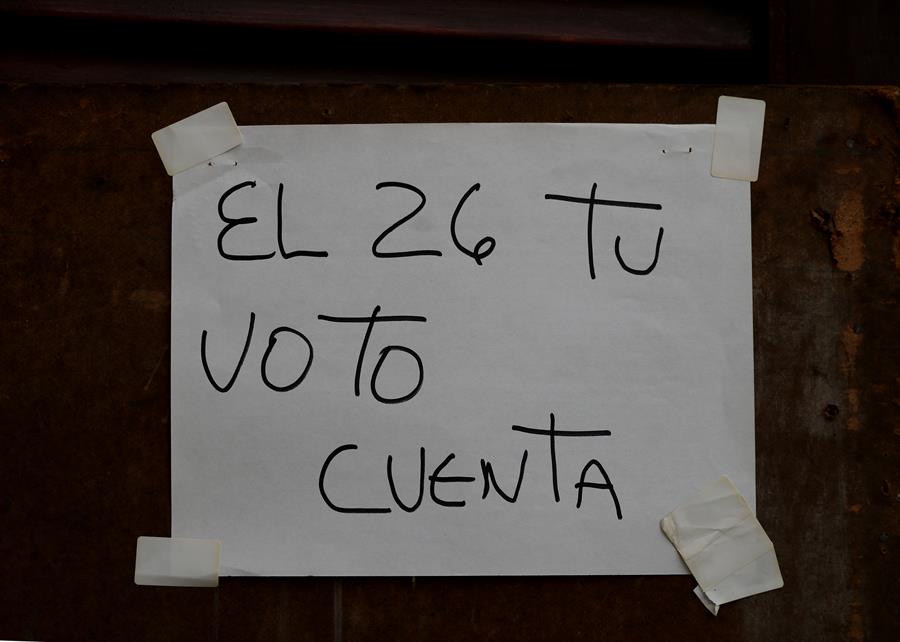 EL 26 TU
VOTO
CUENTA